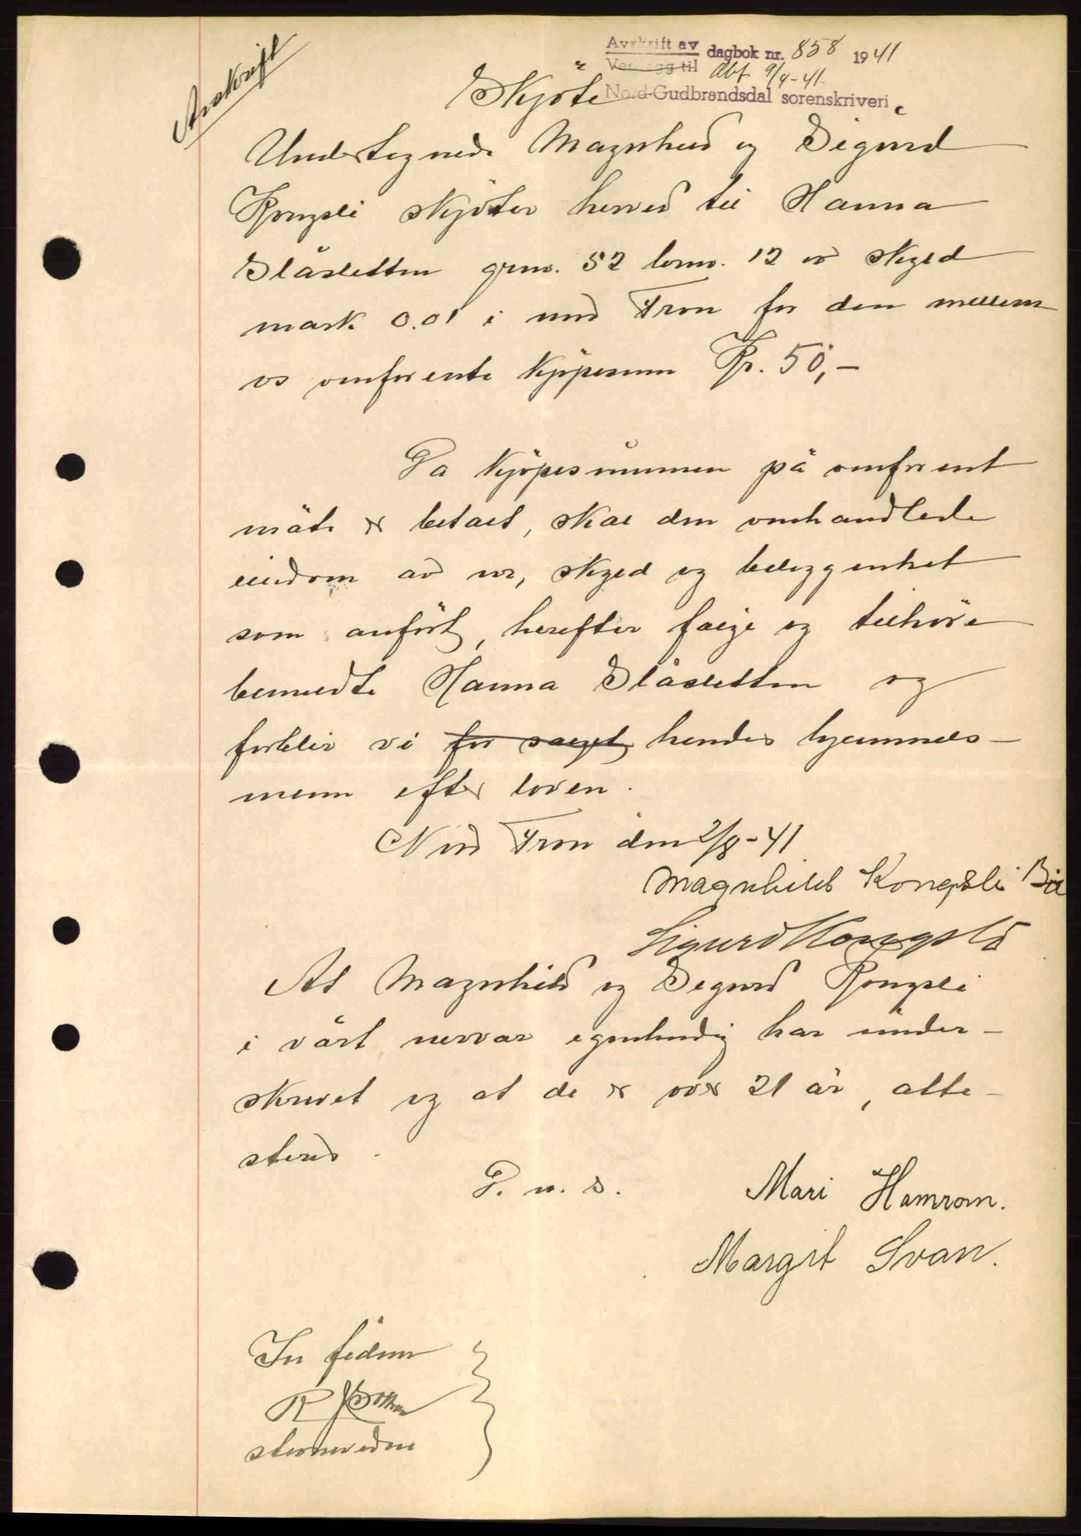 Avskrift
Avskrift av dagbok nr. 858 1941
Vedlegg til Abf 9/4-41.
Nord-Gudbrandsdal sorenskriveri
"Skjöte
Undertegnede Magnhild og Sigurd
Kongsli skjöter herved til Hanna
Slåsletten grnr. 52 brnr. 12 av skyld
mark 0.01 i nord Fron for den mellem
os omforente kjöpesum Kr. 50,-
Da kjöpesummen på omforent
måte er betalt, skal den omhandlede
eiendom av nr, skyld og beleggenhet
som anfört, herefter fölge og tilhöre
bemeldte Hanna Slåsletten og
forblir vi for solgt hendes hjemmels-
menn efter loven.
Nord Fron den 2/8-41
Magnhild Kongsli Bö
Sigurd Kongsli
At Magnhild og Sigurd Kongsli
i vårt nervær egenhendig har under-
skrevet og at de er over 21 år, atte-
steres.
D. u. s.
Mari Hamrom.
Margit Svan.
In fidem
R
stevnevidne